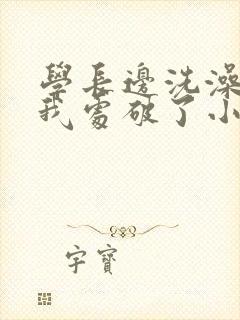 學長邊洗澡
我處破了小
字寶